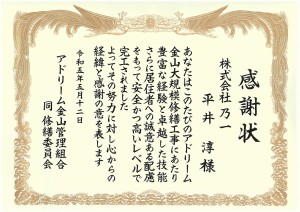 感謝状
株式会社乃一
平井 淳 様
あなたはこのたびのアドリーム
金山大規模修繕工事にあたり
豊富な経験と卓越した技能
さらに居住者への誠意ある配慮
をもって安全かつ高いレベルで
完工されました
よってその努力に対し心からの
経緯と感謝の意を表します
令和五年五月十二日
アドリーム金山管理組合
同 修繕委員会